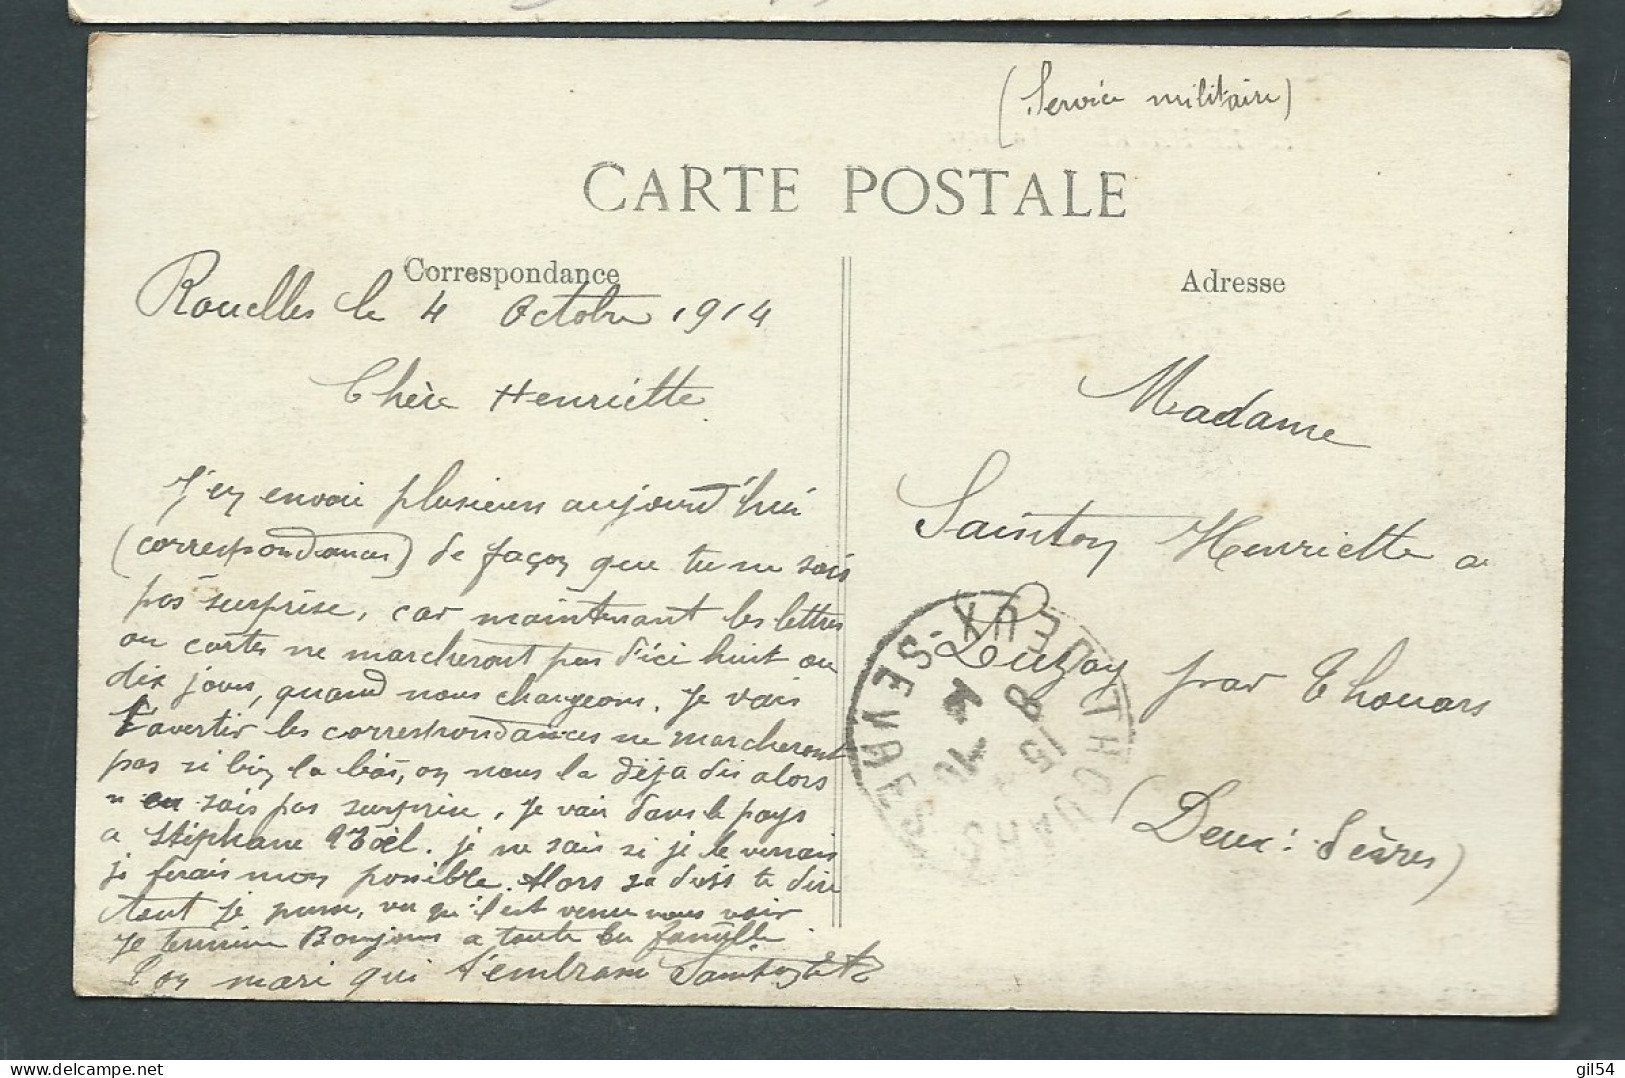 (Service militaire)
CARTE POSTALE
Correspondance
Rouelles le 4 Octobre 1914
Chère Henriette
J'en envoie plusieurs aujourd'hui
(correspondances) de façon que tu ne sois
pas surprise, car maintenant les lettres
ou cartes ne marcheront pas d'ici huit ou
dix jours, quand nous changeons. Je vais
t'avertir les correspondances ne marcheront
pas si bien la bàs, on nous la déja dis alors
n en sois pas surprise. Je vais dans le pays
a Stéphane Noël. je ne sais si je le verrais
je ferais mon possible. Alors sa doit te dire
tout je pense, vu qu'il est venu nous voir
Je termine Bonjour a toute la famille
Ton mari qui t'embrasse Sainton
Adresse
Madame
Sainton Henriette a
Luzay par Thouars
(Deux: Sèvres)
THOUARS
DEUX-SEVRES
gil54